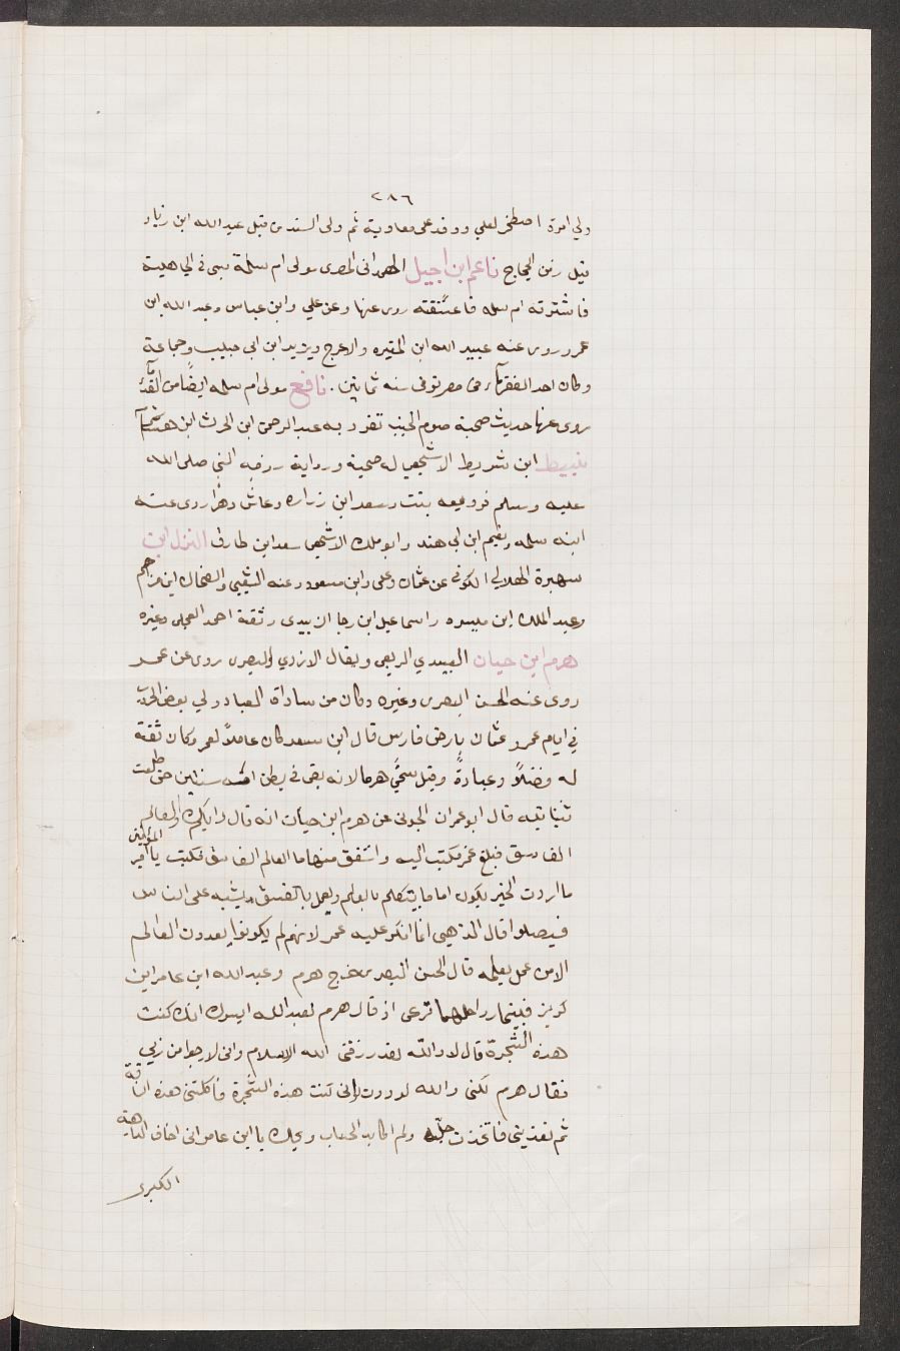 ٢٨٦
ولي امرة اصطخر لعلي ووفد على معاوية ثم ولى السند من قبل عبيد الله ابن زياد
قبل زمن الحجاج ناعم ابن اجيل الهمدانى المصرى مولى ام سلمة سبى في الجاهلية
فاشترته ام سلمه فاعتقته روى عنها وعن علي وابن عباس وعبد الله ابن
عمرو روى عنه عبيد الله ابن المغيره والاعرج ويزيد ابن ابى حبيب وجماعة
وكان احد الفقهآء فى مصر توفى سنه ثمانين . نافع مولى ام سلمه ايضًا من
روى عنها حديث صحبة صوم الجنب تفرد به عبد الرحمن ابن الحرث ابن هشام
نبيط ابن شريط الاشجعى له صحبة ورواية زوجه النبي صلى الله
عليه وسلم بنت سعد ابن زراره وعاش دهرًا روى عنه
ابنه سلمه ونعيم ابن ابى هند وابو ملك الاشجعى سعد ابن طارق النزل ابن
سهبرة الهلالي الكوفى عن عثمان وعلى وابن مسعود وعنه الشعبى والضحاك ابن مزاحم
وعبد الملك ابن ميسره واسماعيل ابن رجا الزبيدى وثقة احمد العجلى وغيره
هرم ابن حيان العبيدي الربعى ويقال الازدي البصرى روى عن عمر
روى عنه الحسن البصرى وغيره وكان من سادات العباد ولي بعض الحرب
في ايام عمر وعثمان بارض فارس قال ابن سعد كان عاملًا لعمر وكان ثقة
له فضلًا وعبادةً وقيل سمّي هرما لانه بقى في بطن امّه سنتين حتى طلعت
ثناياه قال ابو عمران الجونى عن هرم ابن حيان انه قال اياكم والعالم
الفاسق فبلغ عمر فكتب اليه واشفق منها ما العالم الفاسق فكتب يا امير المؤمنين
ما اردت الا الخير يكون امام يتكلم بالعلم ويعمل بالفسق ويشبه على الناس
فيضلوا قال الذهبى انما انكر عليه عمر لانهم لم يكونوا يعدون العالم
الا من عمل بعلمه قال الحسن البصرى خرج هرم وعبد الله ابن عامر ابن
كريز فبينما رواحلهما ترعى اذ قال هرم لعبد الله ايسرك انك كنت
هذه الشجرة قال لا والله لقد رزقنى الله الاسلام وانى لارجوا من ربي
فقال هرم لكنى والله لوددت انى كنت هذه الشجرة فاكلتنى هذه الناقة
ثم بعرتنى فاتخذت جلّه ولم اكابد الحساب ويحك يا ابن عامر انى اخاف الداهية
الكبرى